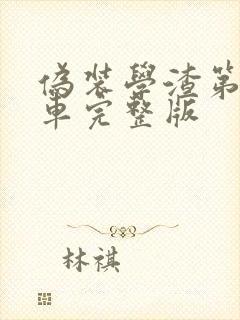 偽裝學渣第
車完整版
林祺